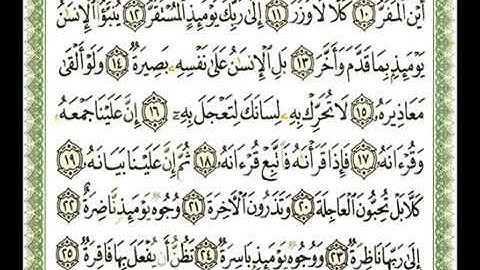 أَيْنَ ٱلْمَفَرُّ ١٠ كَلَّا لَا وَزَرَ ١١ إِلَىٰ رَبِّكَ يَوْمَئِذٍ ٱلْمُسْتَقَرُّ ١٢ يُنَبَّؤُا۟ ٱلْإِنسَٰنُ
يَوْمَئِذٍۭ بِمَا قَدَّمَ وَأَخَّرَ ١٣ بَلِ ٱلْإِنسَٰنُ عَلَىٰ نَفْسِهِۦ بَصِيرَةٌ ١٤ وَلَوْ أَلْقَىٰ
مَعَاذِيرَهُۥ ١٥ لَا تُحَرِّكْ بِهِۦ لِسَانَكَ لِتَعْجَلَ بِهِۦٓ ١٦ إِنَّ عَلَيْنَا جَمْعَهُۥ
وَقُرْءَانَهُۥ ١٧ فَإِذَا قَرَأْنَٰهُ فَٱتَّبِعْ قُرْءَانَهُۥ ١٨ ثُمَّ إِنَّ عَلَيْنَا بَيَانَهُۥ ١٩
كَلَّا بَلْ تُحِبُّونَ ٱلْعَاجِلَةَ ٢٠ وَتَذَرُونَ ٱلْـَٔاخِرَةَ ٢١ وُجُوهٌ يَوْمَئِذٍ نَّاضِرَةٌ ٢٢
إِلَىٰ رَبِّهَا نَاظِرَةٌ ٢٣ وَوُجُوهٌ يَوْمَئِذٍۭ بَاسِرَةٌ ٢٤ تَظُنُّ أَن يُفْعَلَ بِهَا فَاقِرَةٌ ٢٥